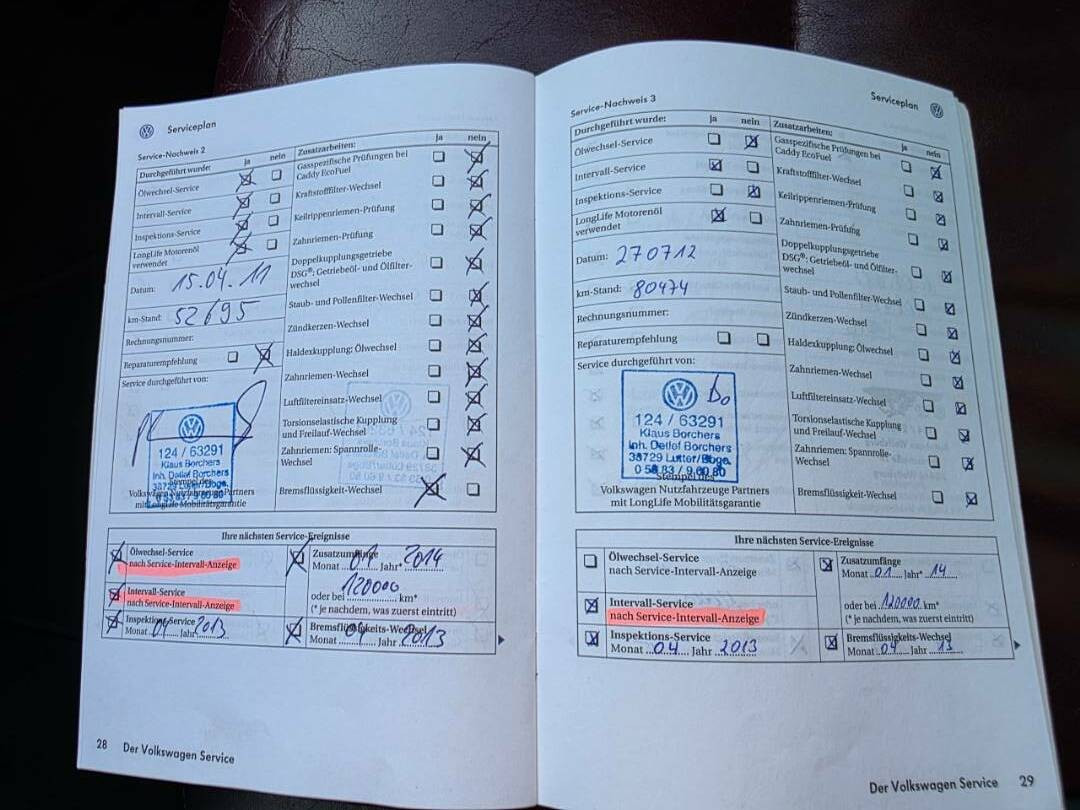 Serviceplan
Service-Nachweis 2
Durchgeführt wurde: ja nein
Ölwechsel-Service
Intervall-Service
Inspektions-Service
LongLife Motorenöl
verwendet
Datum: 15.04.11
km-Stand: 52695
Rechnungsnummer:
Reparaturempfehlung
Service durchgeführt von:
124 / 63291
Klaus Borchers
Inh. Detlof Borchers
38729 Lutter/Bbge.
0 53 83 / 9 60 80
Stempel des
Volkswagen Nutzfahrzeuge Partners
mit LongLife Mobilitätsgarantie
Zusatzarbeiten: ja nein
Gasspezifische Prüfungen bei
Caddy EcoFuel
Kraftstofffilter-Wechsel
Keilrippenriemen-Prüfung
Zahnriemen-Prüfung
Doppelkupplungsgetriebe
DSG®; Getriebeöl- und Ölfilter-
wechsel
Staub- und Pollenfilter-Wechsel
Zündkerzen-Wechsel
Haldexkupplung; Ölwechsel
Zahnriemen-Wechsel
Luftfiltereinsatz-Wechsel
Torsionselastische Kupplung
und Freilauf-Wechsel
Zahnriemen: Spannrolle-
Wechsel
Bremsflüssigkeit-Wechsel
Ihre nächsten Service-Ereignisse
Ölwechsel-Service
nach Service-Intervall-Anzeige
Intervall-Service
nach Service-Intervall-Anzeige
Inspektions-Service
Monat 04 Jahr 2013
Zusatzumfänge
Monat 01 Jahr* 2014
oder bei 120000 km*
(* je nachdem, was zuerst eintritt)
Bremsflüssigkeits-Wechsel
Monat 04 Jahr 2013
28 Der Volkswagen Service
Serviceplan
Service-Nachweis 3
Durchgeführt wurde: ja nein
Ölwechsel-Service
Intervall-Service
Inspektions-Service
LongLife Motorenöl
verwendet
Datum: 270712
km-Stand: 80474
Rechnungsnummer:
Reparaturempfehlung
Service durchgeführt von:
124 / 63291
Klaus Borchers
Inh. Detlof Borchers
38729 Lutter/Bbge.
0 53 83 / 9 60 80
Stempel des
Volkswagen Nutzfahrzeuge Partners
mit LongLife Mobilitätsgarantie
Zusatzarbeiten: ja nein
Gasspezifische Prüfungen bei
Caddy EcoFuel
Kraftstofffilter-Wechsel
Keilrippenriemen-Prüfung
Zahnriemen-Prüfung
Doppelkupplungsgetriebe
DSG®; Getriebeöl- und Ölfilter-
wechsel
Staub- und Pollenfilter-Wechsel
Zündkerzen-Wechsel
Haldexkupplung; Ölwechsel
Zahnriemen-Wechsel
Luftfiltereinsatz-Wechsel
Torsionselastische Kupplung
und Freilauf-Wechsel
Zahnriemen: Spannrolle-
Wechsel
Bremsflüssigkeit-Wechsel
Ihre nächsten Service-Ereignisse
Ölwechsel-Service
nach Service-Intervall-Anzeige
Intervall-Service
nach Service-Intervall-Anzeige
Inspektions-Service
Monat 04 Jahr 2013
Zusatzumfänge
Monat 01 Jahr* 14
oder bei 120000 km*
(* je nachdem, was zuerst eintritt)
Bremsflüssigkeits-Wechsel
Monat 04 Jahr 13
Der Volkswagen Service 29